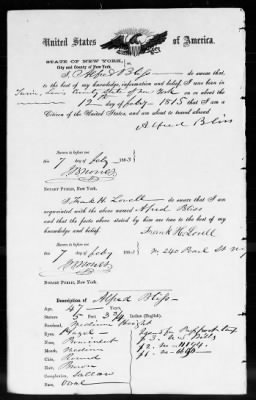 United States of America.
STATE OF NEW YORK,
City and County of New York
I, Alfred Bliss do swear that
to the best of my knowledge, information and belief, I was born in
County State of New York on or about the
12 day of July 1815 that I am a
Citizen of the United States, and am about to travel abroad
Alfred Bliss
Sworn to before me
this 7 day of July 1863
NOTARY PUBLIC, New York.
I, Frank H. Lovell do swear that I am
acquainted with the above named Alfred Bliss
and that the facts above stated by him are true to the best of my
knowledge and belief.
Frank H. Lovell
Sworn to before me
this 7 day of July 1863
240 Pearl St N.Y
NOTARY PUBLIC, New York.
Description of Alfred Bliss
Age, 47
Stature, 5 Feet 3 3/4 Inches (English).
Forehead, Medium Height
Eyes, Hazel
Nose, Prominent
Mouth, Medium
Chin, Round
Hair, Brown
Complexion, Sallow
Face, Oval